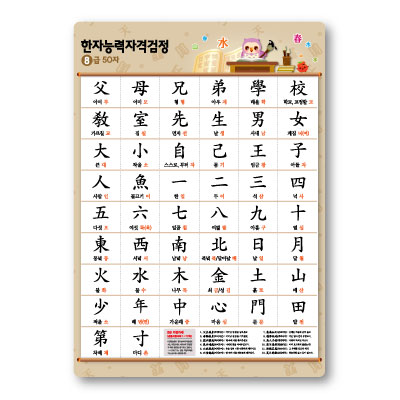 水 春
한자능력자격검정
8급 50자
父 母 兄 弟 學 校
아비 부 어미 모 형 형 아우 제 배울 학 학교, 교정할 교
敎 室 先 生 男 女
가르칠 교 집 실 먼저 선 날 생 사내 남 계집 녀(여)
大 小 自 己 王 子
큰 대 작을 소 스스로, 부터 자 몸 기 임금 왕 아들 자
人 魚 一 二 三 四
사람 인 물고기 어 한 일 두 이 석 삼 넉 사
五 六 七 八 九 十
다섯 오 여섯 륙(육) 일곱 칠 여덟 팔 아홉 구 열 십
東 西 南 北 日 月
동녘 동 서녘 서 남녘 남 북녘 북/달아날 배 날 일 달 월
火 水 木 金 土 山
불 화 물 수 나무 목 쇠 금/성 김 흙 토 메 산
少 年 中 心 門 田
적을 소 해 년(연) 가운데 중 마음 심 문 문 밭 전
第 寸
차례 제 마디 촌